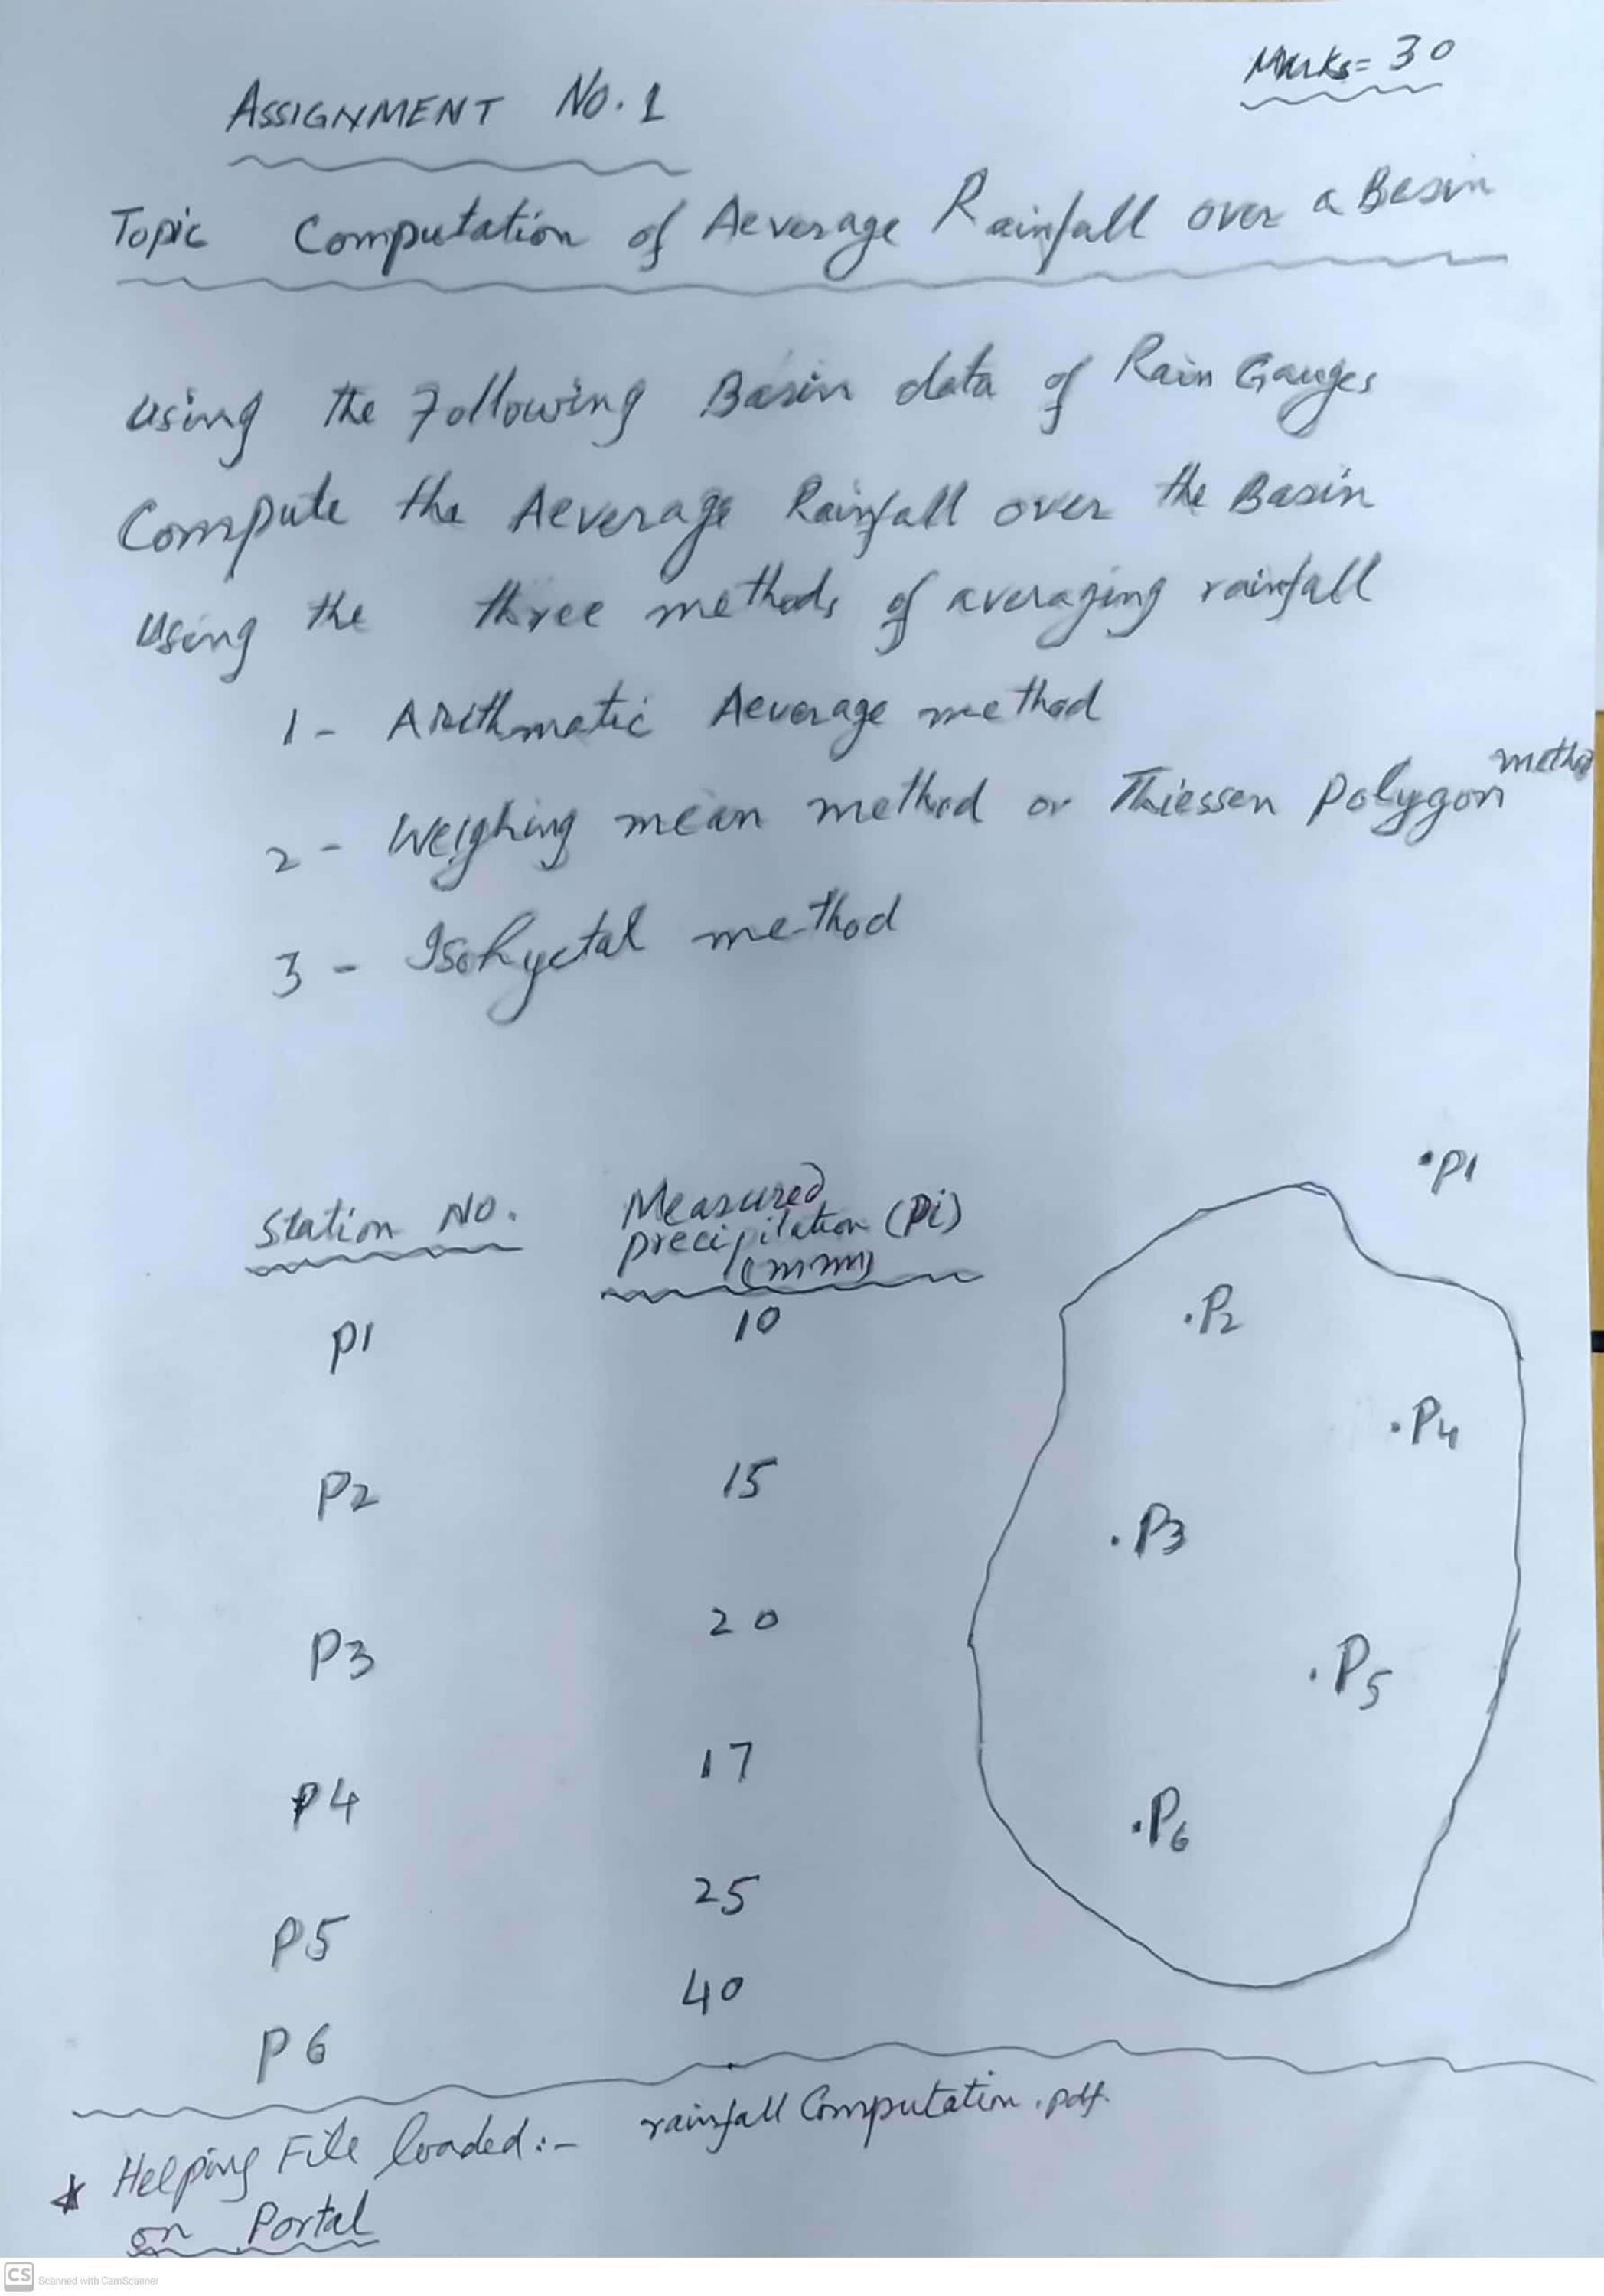 Marks= 30
ASSIGNMENT No. 1
Topic Computation of Aeverage Rainfall over a Basin
using the Following Basin data of Rain Gauges
Compute the Aeverage Rainfall over the Basin
Using the three methods of averaging rainfall
1- Arithmatic Aeverage method
2- Weighing mean method or Thiessen polygon method
3- Isohyetal method
Station No. Measured precipitation (Pi) (mm)
P1 10
P2 15
P3 20
P4 17
P5 25
P6 40
P1
P2
P4
P3
P5
P6
* Helping File loaded:- rainfall Computation.pdf.
on Portal
CS Scanned with CamScanner